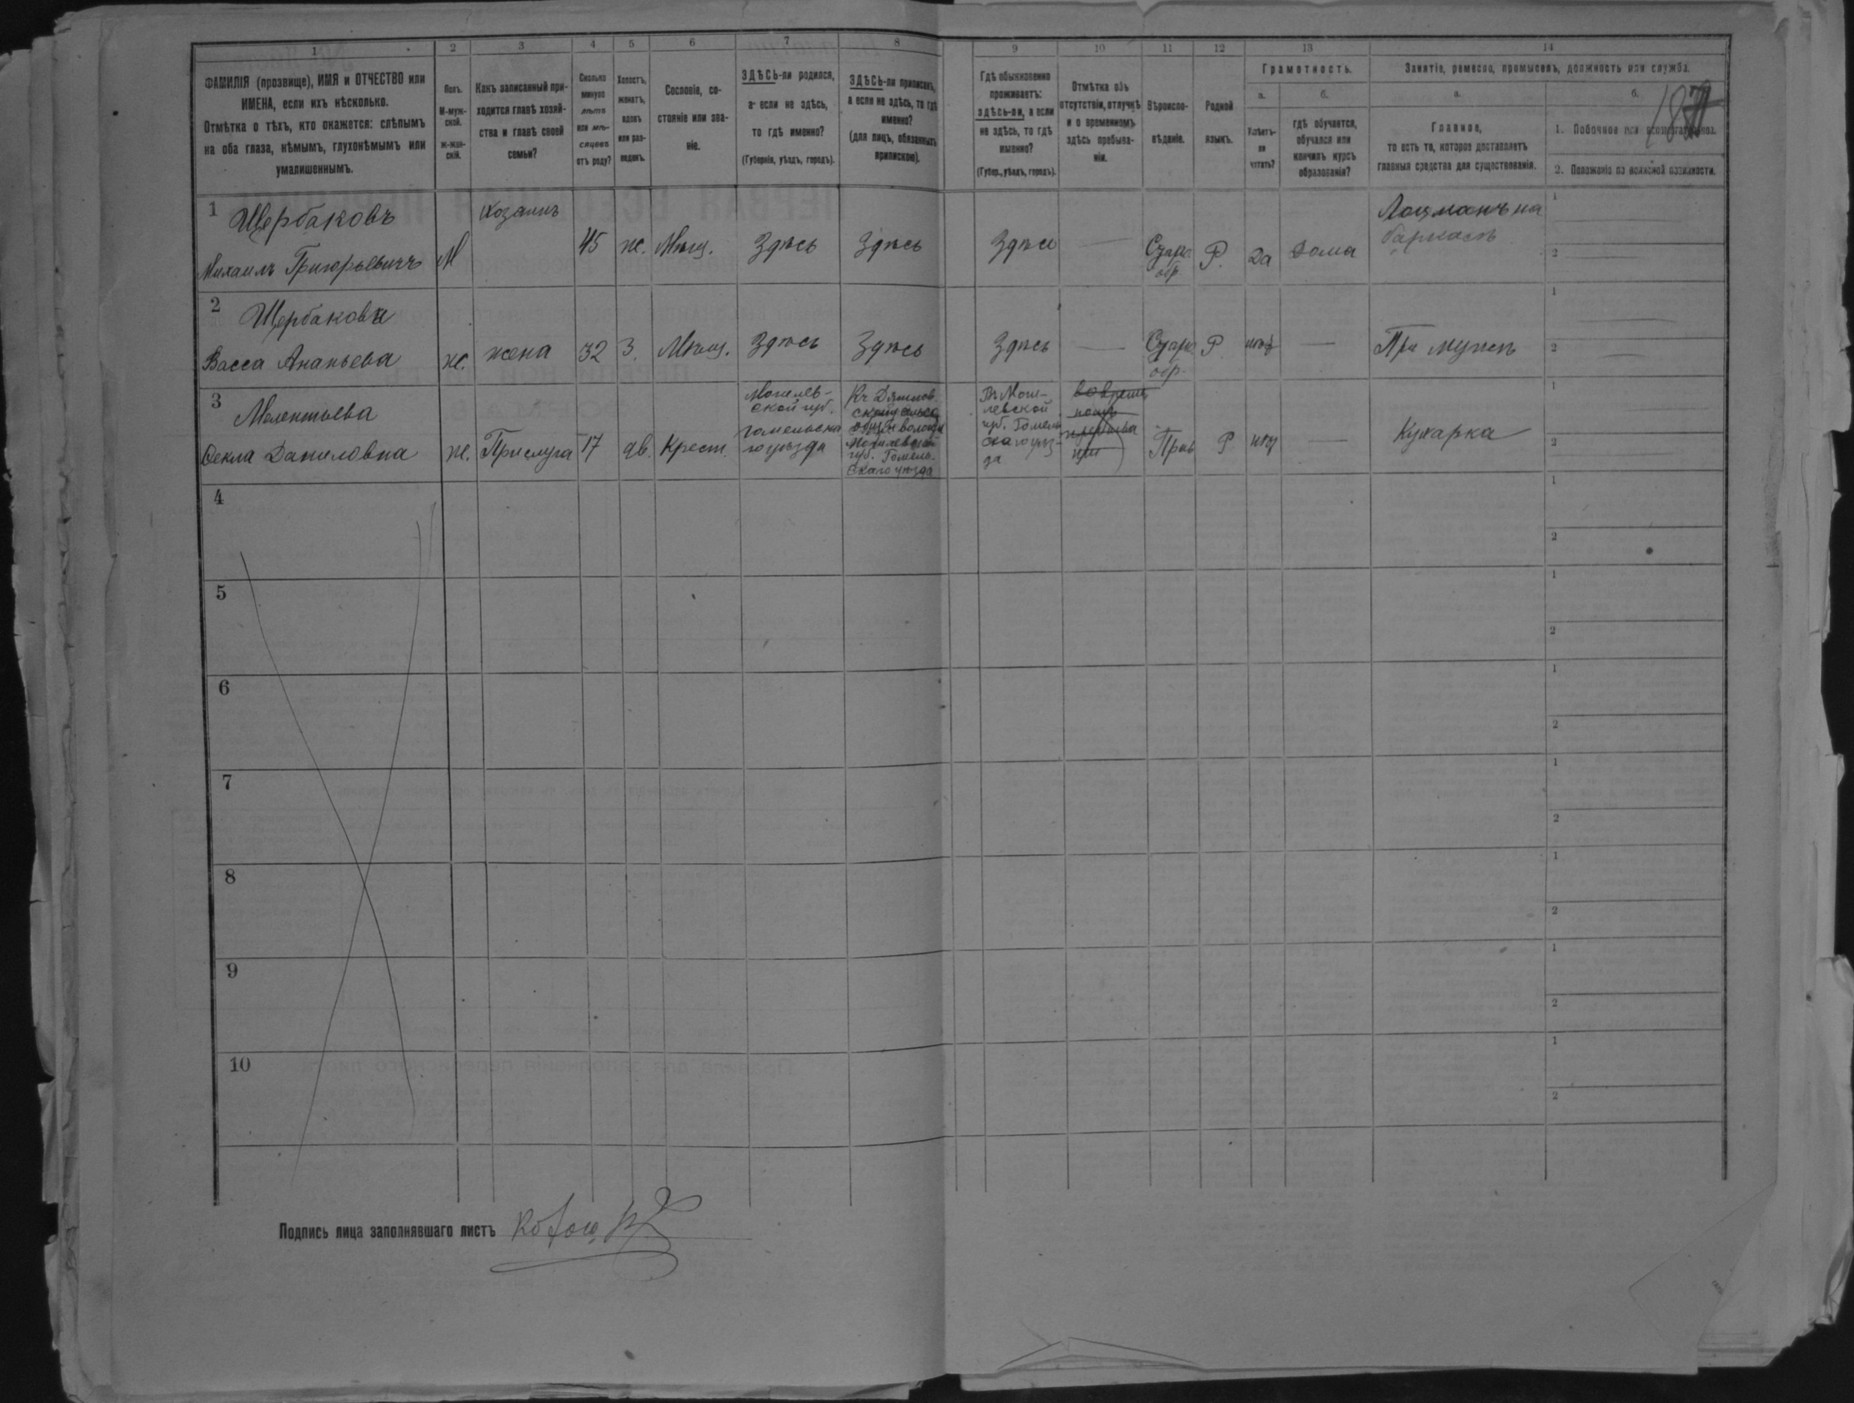 1 2 3 4 5 6 7 8 9 10 11 12 13 14
ФАМИЛІЯ (прозвище), ИМЯ и ОТЧЕСТВО или
ИМЕНА, если ихъ нѣсколько.
Отмѣтка о тѣхъ, кто окажется: слѣпымъ
на оба глаза, нѣмымъ, глухонѣмымъ или
умалишеннымъ.
Полъ.
М-муж-
ской.
ж-жен-
скій.
Какъ записанный при-
ходится главѣ хозяй-
ства и главѣ своей
семьи?
Сколько
минуло
лѣтъ
или мѣ-
сяцевъ
отъ роду?
Холостъ,
женатъ,
вдовъ
или раз-
веденъ.
Сословіе, со-
стояніе или зва-
ніе.
ЗДѢСЬ-ли родился,
а если не здѣсь,
то гдѣ именно?
(Губернія, уѣздъ, городъ).
ЗДѢСЬ-ли приписанъ,
а если не здѣсь, то гдѣ
именно?
(для лицъ, обязанныхъ
припискою).
Гдѣ обыкновенно
проживаетъ:
здѣсь-ли, а если
не здѣсь, то гдѣ
именно?
(Губер., уѣздъ, городъ).
Отмѣтка объ
отсутствіи, отлучкѣ
и о временномъ
здѣсь пребыва-
ніи.
Вѣроиспо-
вѣданіе.
Родной
языкъ.
Грамотность.
а. б.
Умѣетъ-
ли
читать?
гдѣ обучается,
обучался или
кончилъ курсъ
образованія?
Занятіе, ремесло, промыселъ, должность или служба.
а. б.
Главное,
то есть то, которое доставляетъ
главныя средства для существованія.
1. Побочное или вспомогательное.
2. Положеніе по воинской повинности.
1 Щербаковъ
Михаилъ Григорьевичъ М Хозяинъ 45 ж. Мѣщ. Здѣсь Здѣсь Здѣсь — Р. Да Дома
Лоцманъ на
баркасѣ
1
2
2 Щербакова
Васса Ананьева ж. жена 32 З. Мѣщ. Здѣсь Здѣсь Здѣсь — Р — При мужѣ
1
2
3 Мелентьева
Фекла Даниловна ж. Прислуга 17 дв. Крест.
Могилев-
ской губ.
Гомельска
го уѣзда
Могилевской
губ. Гомель-
скаго уѣзда
Въ Моги-
левской
губ. Гомель
скаго уѣз-
да
Прав Р — Кухарка
1
2
4
1
2
5
1
2
6
1
2
7
1
2
8
1
2
9
1
2
10
1
2
Подпись лица заполнявшаго листъ